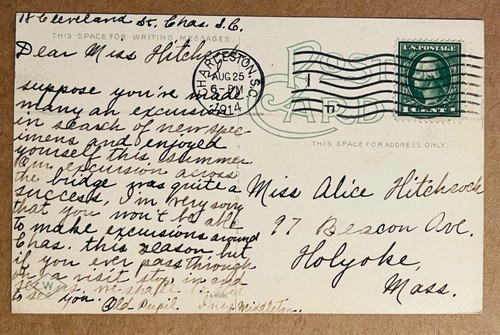 18 Cleveland St. Chas. S.C.
THIS SPACE FOR WRITING MESSAGES
Dear Miss Hitchcock
suppose you've made
many an excursion
in search of new spec-
imens and enjoyed
yourself this summer
Our excursion across
the bridge was quite a
success, I'm very sorry
that you won't be able
to make excursions around
Chas. this season but
if you ever pass through
on a visit stop in and
to see us, we shall
you.
Old Pupil. Inez Middleton.
CHARLESTON, S.C.
AUG 25
6-PM
1914
POST
CARD
U.S. POSTAGE
1 CENT 1
THIS SPACE FOR ADDRESS ONLY.
Miss Alice Hitchcock
97 Beacon Ave.
Holyoke,
Mass.
W